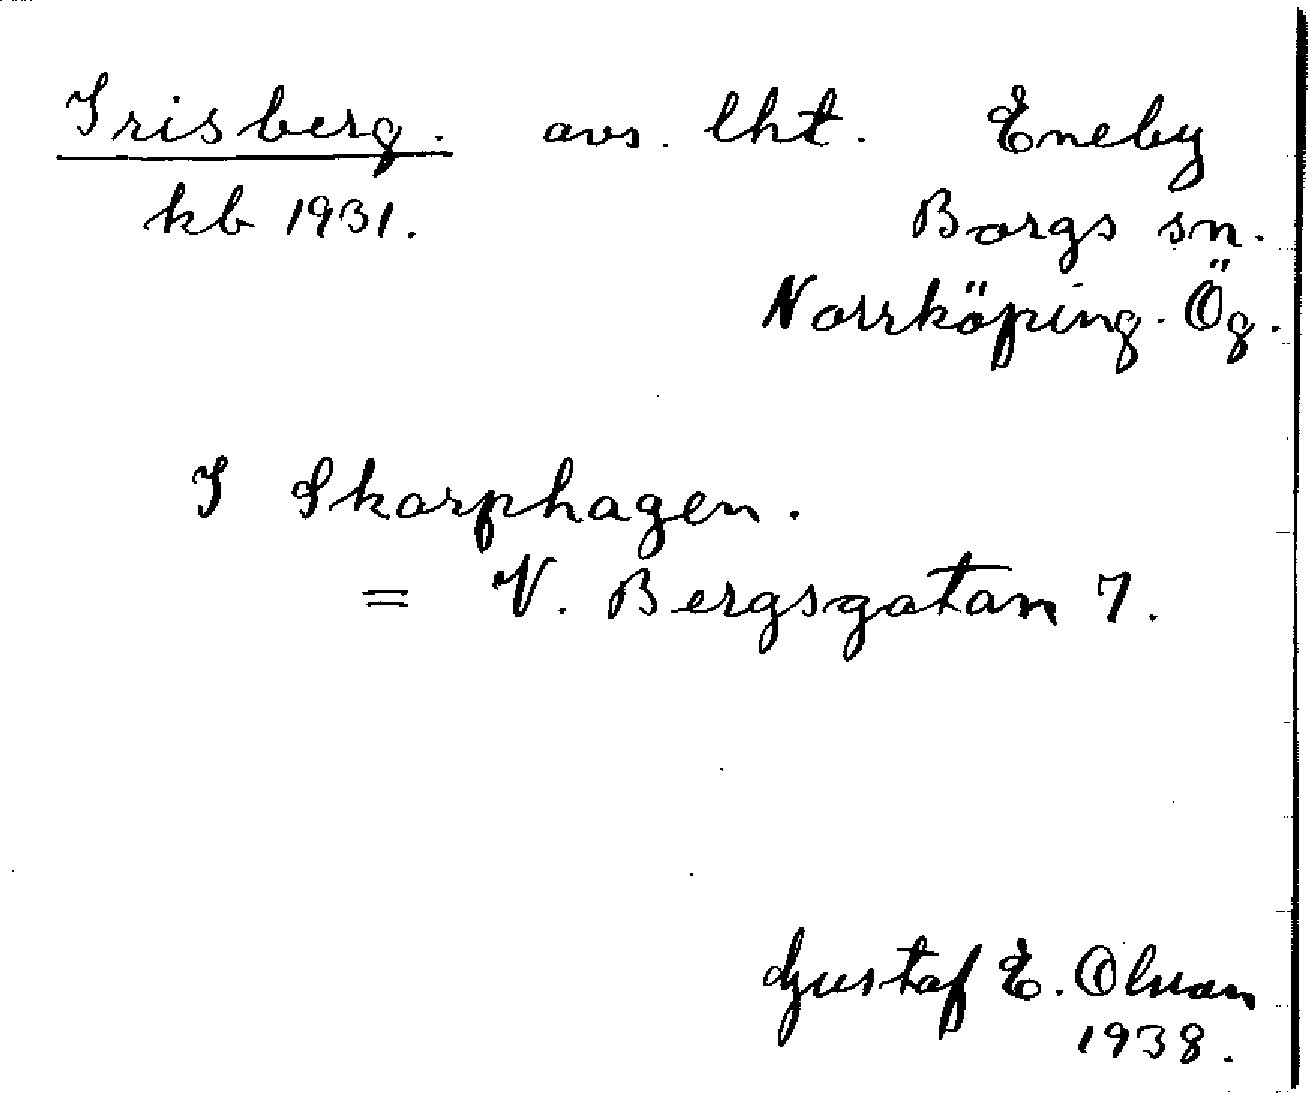 Irisberg. avs. lht. Eneby
kb 1931. Borgs sn.
Norrköping. Ög.
I Skarphagen.
= V. Bergsgatan 7.
Gustaf E. Olsson
1938.